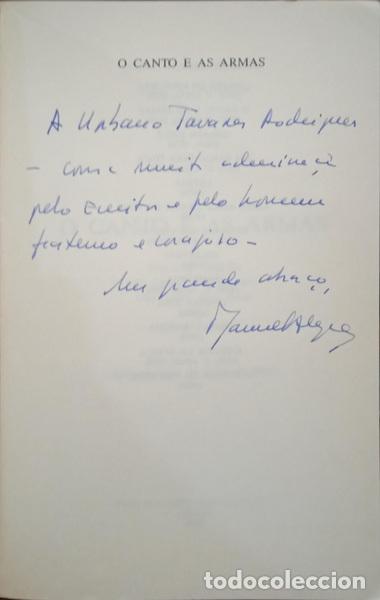 O CANTO E AS ARMAS
A Urbano Tavares Rodrigues
– com a muita admiração
pelo Escritor e pelo homem
fraterno e corajoso –
Um grande abraço,
Manuel Alegre
todocoleccion